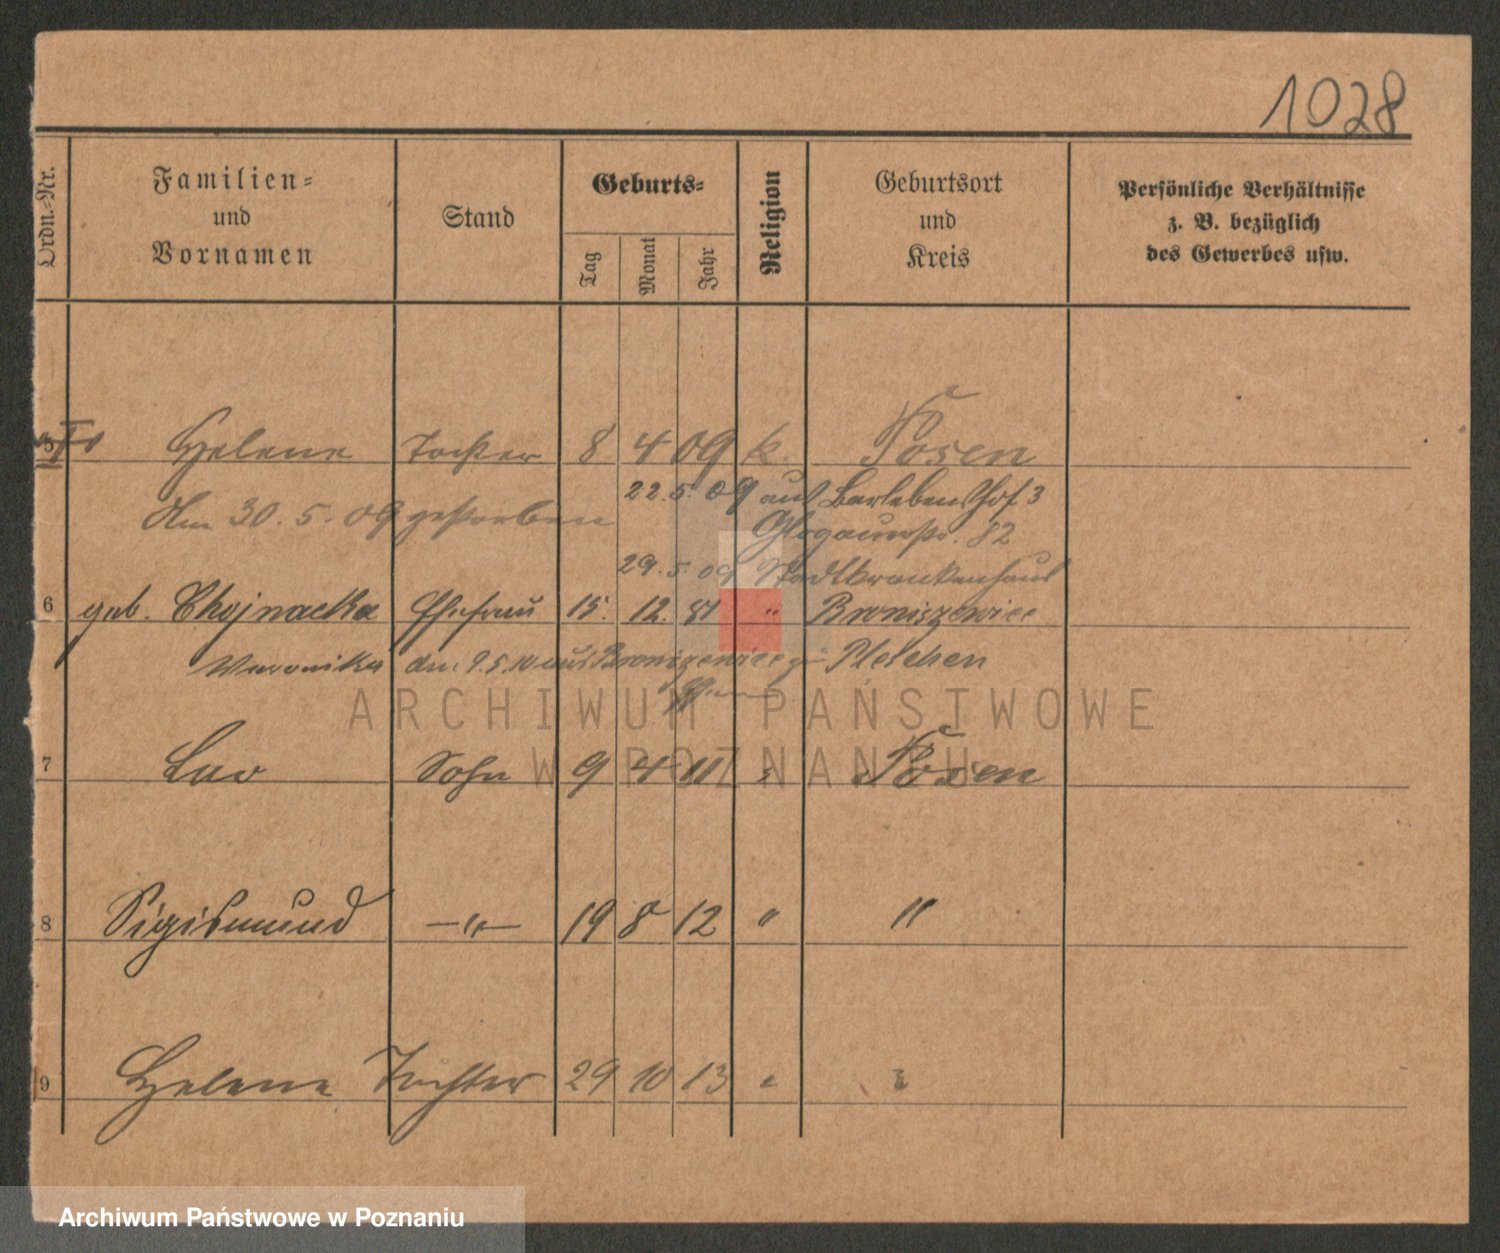 1028
Ordn.-Nr.
Familien-
und
Vornamen
Stand
Geburts-
Tag
Monat
Jahr
Religion
Geburtsort
und
Kreis
Persönliche Verhältnisse
z. B. bezüglich
des Gewerbes usw.
5 Helene Tochter 8 4 09 k. Posen
22.5.09 auf Barleben Hof 3
Am 30.5.09 gestorben
Glogauerstr. 82
29.5.09 Stadtkrankenhaus
6 geb. Chojnacka Ehefrau 15. 12. 81 " Broniszewice
Veronika den 9.5.10 aus Broniszewice Pleschen
ARCHIWUM PAŃSTWOWE
W POZNANIU
7 Leo Sohn 9 4 11 " Posen
8 Sigismund —"— 19 8 12 " "
9 Helene Tochter 29 10 13 " "
Archiwum Państwowe w Poznaniu